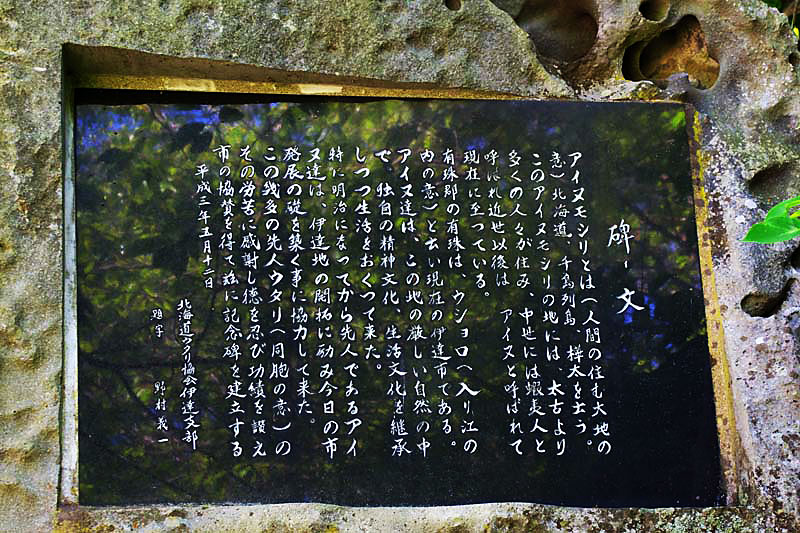 碑文
アイヌモシリとは(人間の住む大地の
意)北海道、千島列島、樺太を云う。
このアイヌモシリの地には、太古より
多くの人々が住み、中世には蝦夷人と
呼ばれ近世以後は アイヌと呼ばれて
現在に至っている。
有珠郡の有珠は、ウショロ(入り江の
内の意)と云い現在の伊達市である。
アイヌ達は、この地の厳しい自然の中
で、独自の精神文化、生活文化を継承
しつつ生活をおくって来た。
特に明治になってから先人であるアイ
ヌ達は、伊達地の開拓に励み今日の市
発展の礎を築く事に協力して来た。
この幾多の先人ウタリ(同胞の意)の
その労苦に感謝し徳を忍び功績を讃え
市の協賛を得て玆に記念碑を建立する
平成三年五月十二日
北海道ウタリ協会伊達支部
題字 野村義一